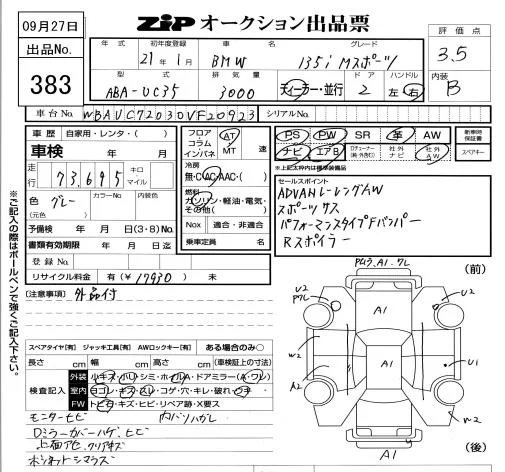 09月27日
ZiP オークション出品票
出品No.
383
評価点
3.5
内装
B
年式 初年度登録 車名 グレード
21年1月 BMW 135i Mスポーツ
型式 排気量 ドア ハンドル
ABA-UC35 3000 ディーラー・並行 2 左・右
車台No. WBAUC72030VF20923 シリアルNo.
車歴 自家用・レンタ・( )
車検 年 月
走行 73,695 キロ マイル
色 グレー カラーNo. 内装色
(元色)
予備検 年 月 日(3・8)No.
書類有効期限 年 月 日迄
登録No.
リサイクル料金 有(¥17930) 未
フロア・コラム・インパネ AT MT 速
冷房
無・C・AC・AAC・( )
燃料
ガソリン・軽油・電気・その他( )
Nox 適合・非適合
乗車定員 名
PS PW SR 革 AW
ナビ エアB 社外ナビ 社外AW
新車時保証書
スペアキー
※上記太枠内は標準装備品
セールスポイント
ADVANレーシングAW
スポーツサス
パフォーマンスタイプFバンパー
Rスポイラー
[注意事項] 外品付
※ご記入の際はボールペンで強くご記入下さい。
スペアタイヤ[有] ジャッキ工具[有] AWロックキー[有] ある場合のみ○
長さ cm 幅 cm 高さ cm (車検証上の寸法)
検査記入
外装 小キズ・小凹・シミ・ホイルA・ドアミラー(A・ワレ)
室内 ヨゴレ・キズ・スレ・コゲ・穴・キレ・破れ・ウキ
FW トビ・キズ・ヒビ・リペア跡・X要ス
モニターヒビ 内バリハガレ
Dミラーカバーハゲ、ヒビ
ボンネットシマラズ
(前)
A1
U2
U2
W2
A1
U1
A2
W2
A1
(後)